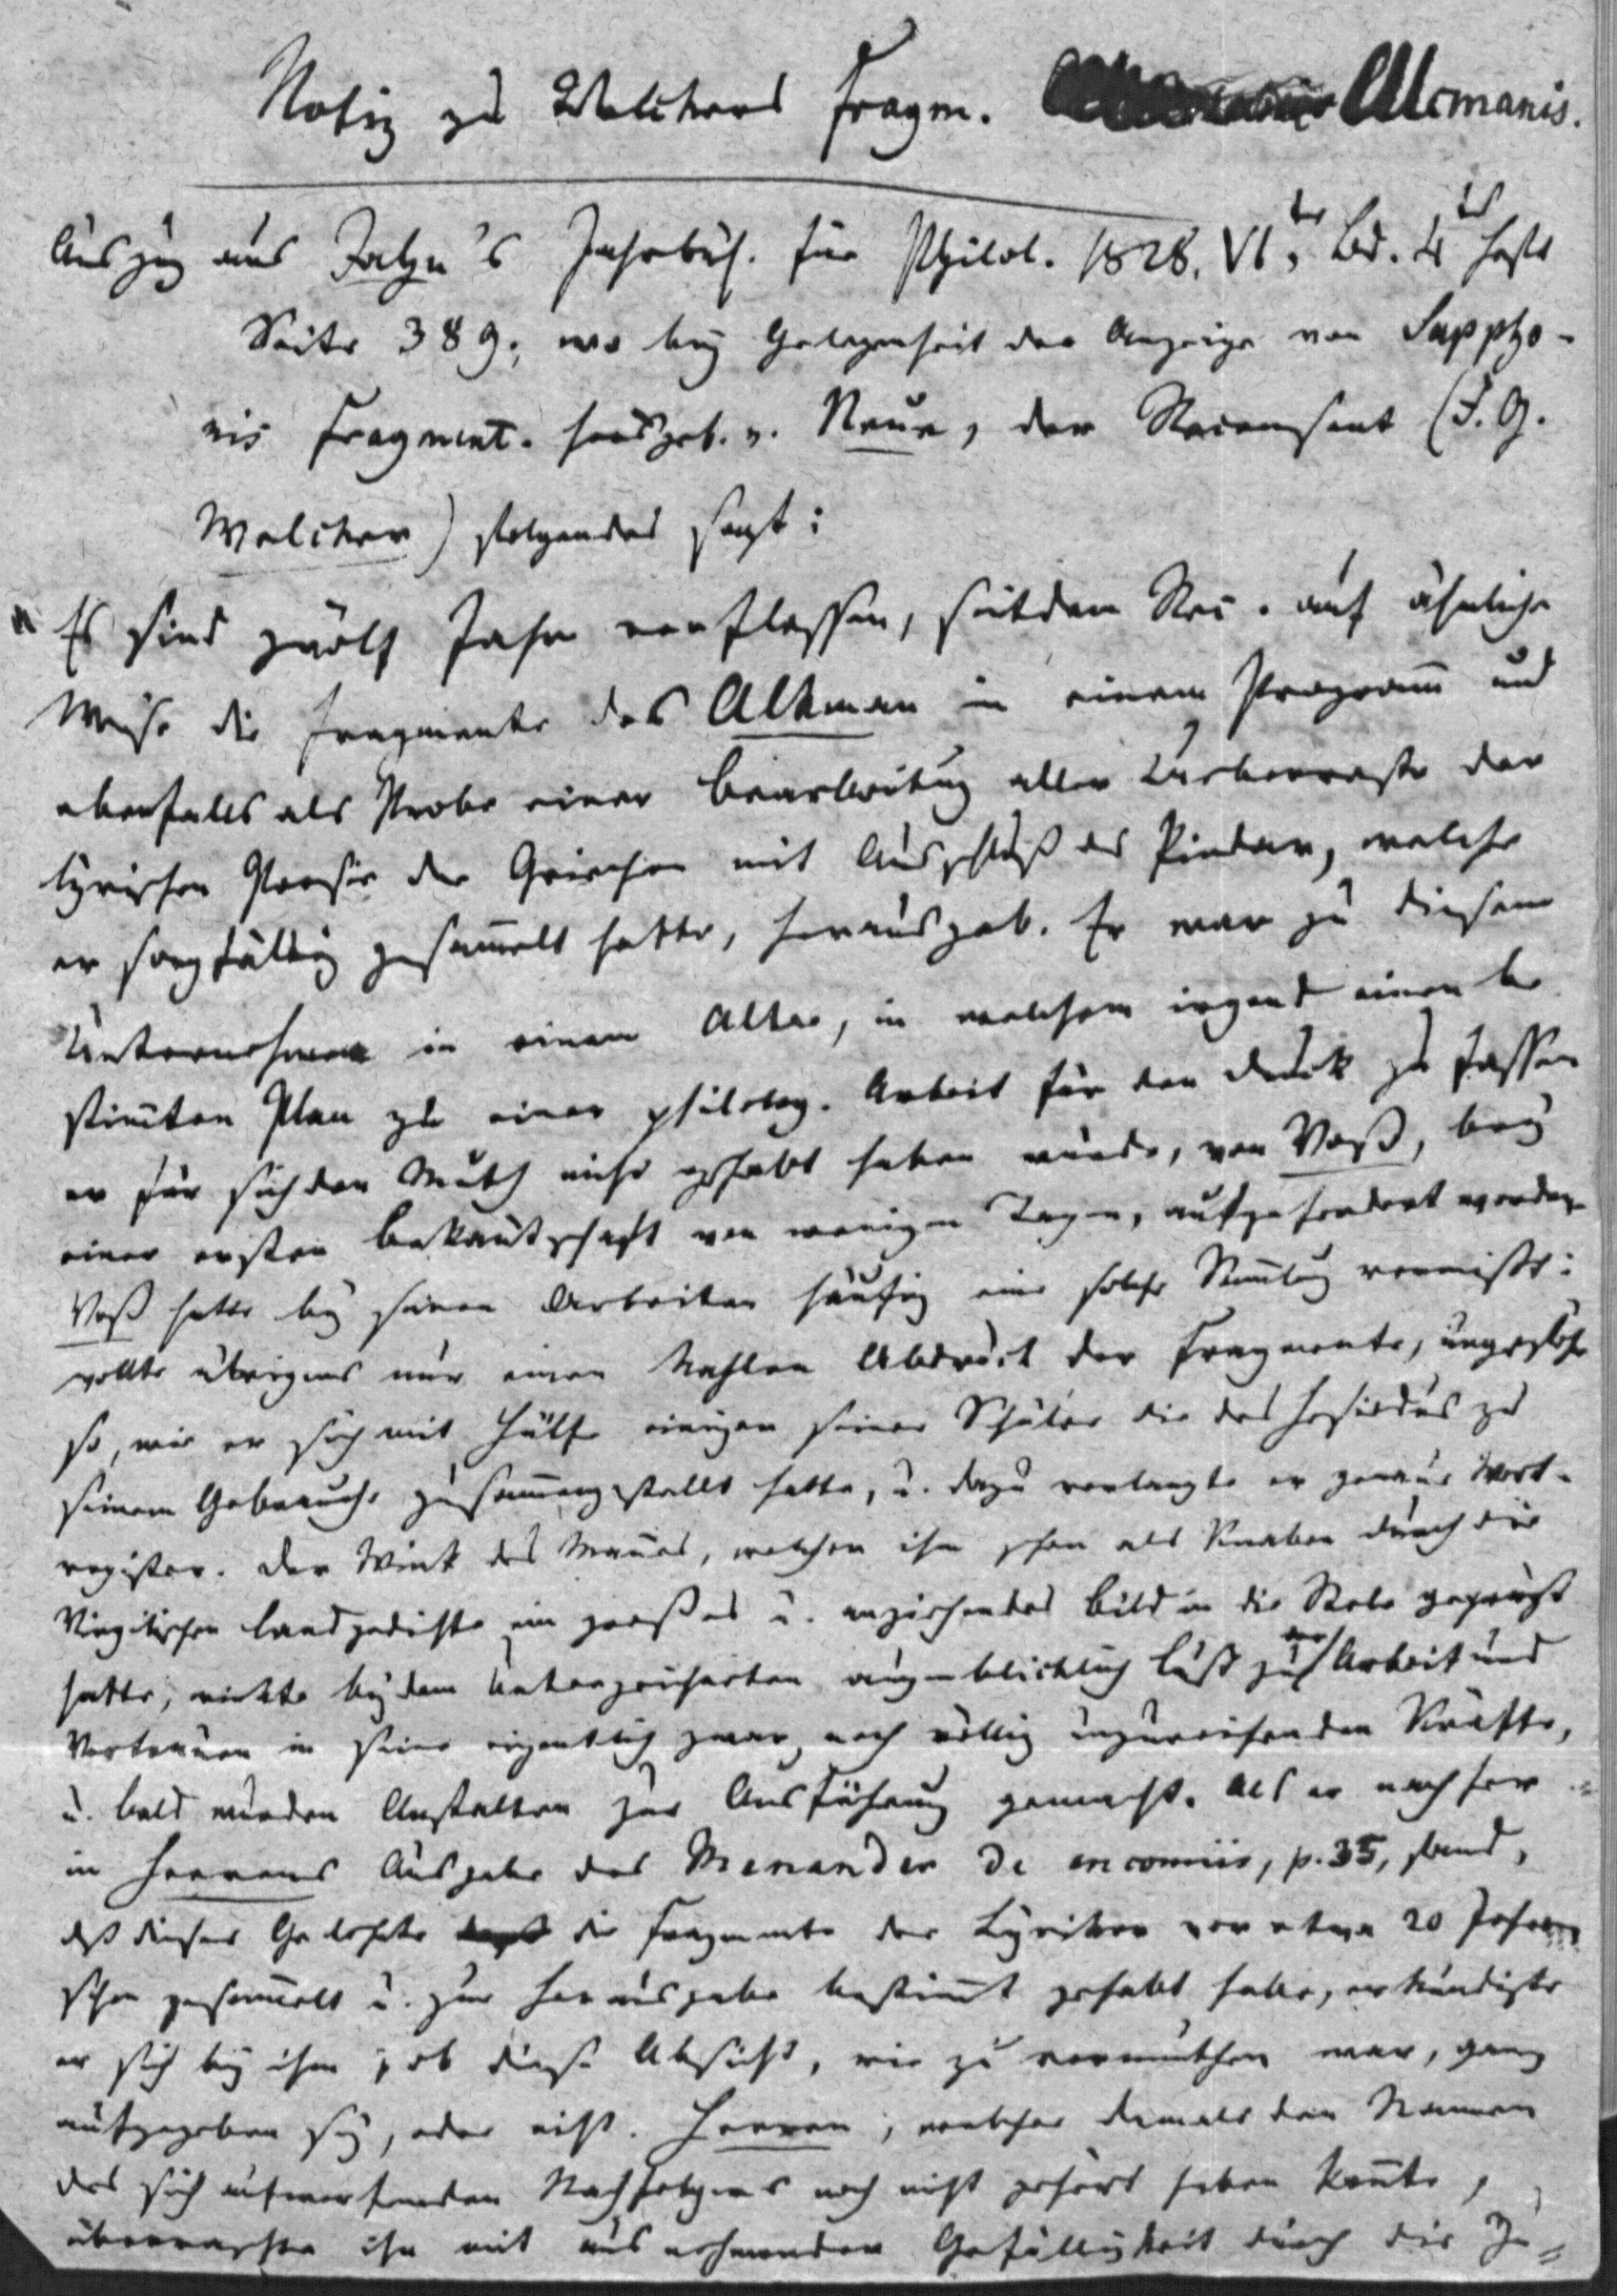 Notiz zu Welckers Fragm. Alcmanis.
Auszug aus Jahn's Jahrbüch. für Philol. 1828. VI.ter Bd. 4tes Heft
Seite 389; wo bey Gelegenheit der Anzeige von Sappho-
nis Fragment. herausgeb. v. Neue, der Recensent (F. G.
Welcker) folgendes sagt:
"Es sind zwölf Jahre verflossen, seitdem Rec. auf ähnliche
Weise die Fragmente des Alkman in einem Programm und
ebenfalls als Probe einer Bearbeitung aller Ueberreste der
lyrischen Poesie der Griechen mit Ausschluß des Pindar, welche
er sorgfältig gesammelt hatte, herausgab. Er war zu diesem
Unternehmen in einem Alter, in welchem irgend einen be
stimmten Plan zu einer philolog. Arbeit für den Druck zu fassen
er für sich den Muth nicht gehabt haben würde, von Voß, bey
einer ersten Bekanntschaft von wenigen Tagen, aufgefordert worden.
Voß hatte bey seinen Arbeiten häufig eine solche Sammlung vermißt:
wollte übrigens nur einen Abdruck der Fragmente, ungefähr
so, wie er sich mit Hülfe einiger seiner Schüler die des Hesiodus zu
seinem Gebrauche zusammengestellt hatte, u. dazu verlangte er genaue Wort-
register. Der Wink des Mannes, welcher ihm schon als Knaben durch die
Virgilischen Landgedichte ein großes u. anziehendes Bild in die Seele geprägt
hatte, weckte bey dem Unterzeichneten augenblicklich Lust zu der Arbeit und
Vertrauen in seine eigentlich zwar noch völlig unzureichenden Kräfte,
u. bald wurden Anstalten zur Ausführung gemacht. Als er nachher
in Heerens Ausgabe des Menander de encomiis, p. 35, fand,
daß dieser Gelehrte die Fragmente der Lyriker vor etwa 20 Jahren
schon gesammelt u. zur Herausgabe bestimmt gehabt habe, erkundigte
er sich bey ihm, ob diese Absicht, wie zu vermuthen war, ganz
aufgegeben sey, oder nicht. Heeren, welcher damals den Namen
des sich aufwerfenden Nachfolgers noch nicht gehört haben konnte,
überraschte ihn mit ausnehmender Gefälligkeit durch die Zu=